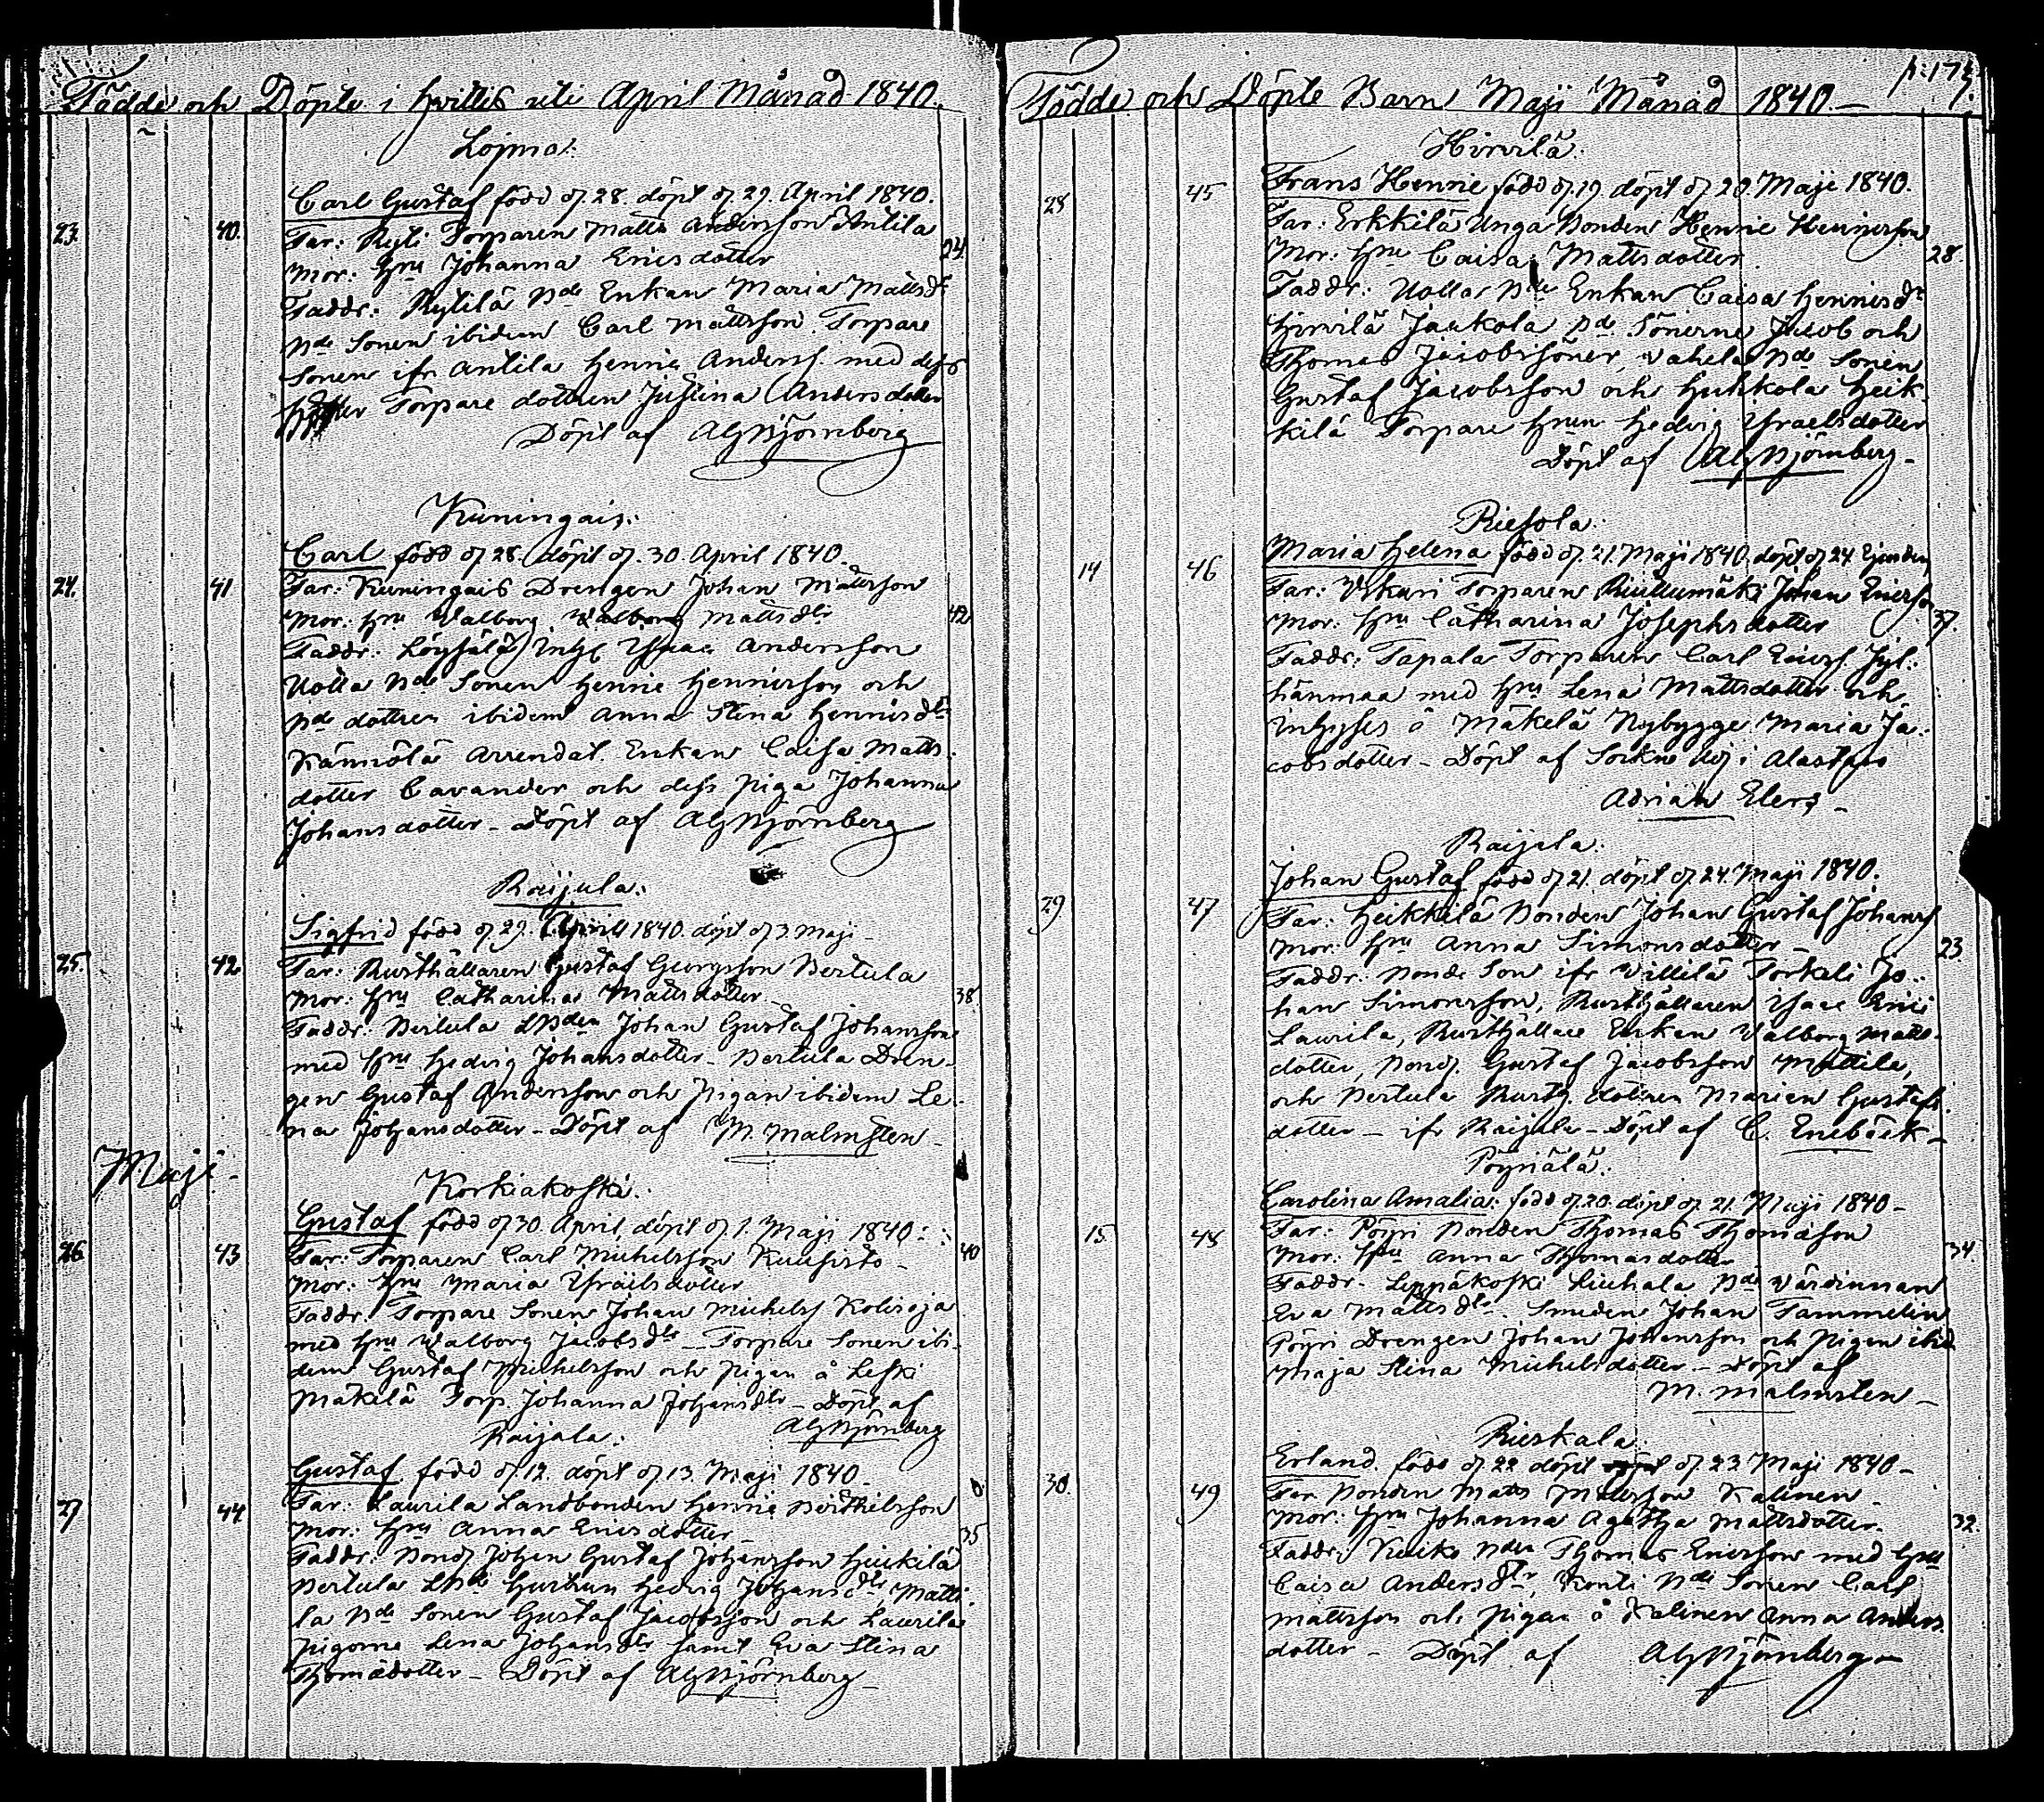 Födde och Döpte i Hvittis uti April Månad 1840.
Lojma:
Carl Gustaf född d. 28. döpt d. 29. April 1840.
23. 40. Far: Ryti Torparen Matts Andersson Antila
Mor: Hru Johanna Ericsdotter 24
Faddr: Rytilä Bde Enkan Maria Mattsdr
Bde Sonen ibidem Carl Mattsson. Torpare
Sonen ifr Antila Henric Anderss med dess
Torpare dottren Justina Andersdotter
Döpt af AGBjörnberg
Kuningais:
Carl född d. 28. döpt d. 30. April 1840.
24. 41 Far: Kuningais Drengen Johan Mattsson
Mor: Hru Walborg Walborg Mattsdtr 42
Faddr: Löysälä Inh. Isaac Andersson
Uotta Bde Sonen Henric Henricsson och
Bde dottren ibidem Anna Stina Henricsdtr
Kännölä Arrendat. Enkan Caisa Matts-
dotter Cavander och dess piga Johanna
Johansdotter – Döpt af AGBjörnberg
Raijala:
Sigfrid född d. 29. April 1840. döpt d. 3 Maji –
25. 42 Far: Rusthållaren Gustaf Georgsson Bertula
Mor: Hru Catharina Mattsdotter 38
Faddr: Bertula LBden Johan Gustaf Johansson
med Hru Hedvig Johansdotter – Bertula Dren-
gen Gustaf Andersson och Pigan ibidem Le-
na Johansdotter – Döpt af M. Malmsten –
Maji –
Korkiakoski:
Gustaf född d. 30. April, döpt d. 1. Maji 1840:
26 43 Far: Torparen Carl Michelsson Kuusisto – 40
Mor: Hru Maria Israelsdotter
Faddr. Torpare Sonen Johan Michelss Koliseja
med Hru Walborg Jacobsdtr – Torpare Sonen ibi-
dem Gustaf Michelsson och Pigan å Leski
Mäkelä Torp. Johanna Johansdtr – Döpt af
AGBjörnberg
Raijala:
Gustaf född d. 12. döpt d. 13. Maji 1840 –
27 44 Far: Laurila Landbonden Henric Berthelsson
Mor: Hru Anna Ericsdotter 35
Faddr: Bond. Johan Gustaf Johansson Heikilä
Bertula LBde Hustrun Hedvig Johansdtr, Matti-
la Bde Sonen Gustaf Jacobsson och Laurila
Pigorne Lena Johansdtr samt Eva Stina
Thomædotter – Döpt af AGBjörnberg –
p: 175.
Födde och Döpte Barn Maji Månad 1840. –
Hirvilä:
Frans Henric född d. 19. döpt d. 20. Maji 1840.
28 45 Far: Erkkilä Unga Bonden Henric Henricsson
Mor: Hru Caisa Mattsdotter 28.
Faddr: Uotta Bde Enkan Caisa Henricsdr
Hirvilä Jaakola Bde Sönerne Jacob och
Thomas Jacobssöner, Wahela Bde Sonen
Gustaf Jacobsson och Huhkola Heik-
kilä Torpare Hrun Hedvig Israelsdotter
Döpt af AGBjörnberg –
Riesola:
Maria Helena född d. 21. Maji 1840, döpt d. 24 Ejusdem
14 46 Far: Uskari Torparen Johan Ericsson
Mor: Hru Catharina Josephsdotter 37.
Faddr: Tapala Torparen Carl Ericss. Jyl-
hänmaa med Hru Lena Mattsdotter och
Inhyses å Mäkelä Nybygge Maria Ja-
cobsdotter – Döpt af Sockne Adj. i Alastaro
Adrian Elers –
Raijala:
Johan Gustaf född d. 21. döpt d. 24. Maji 1840.
29 47 Far: Heikkilä Bonden Johan Gustaf Johanss
Mor: Hru Anna Simonsdotter – 23
Faddr. Bonde Son ifr Villilä Torkeli Jo-
han Simonsson, Rusthållaren Isaac Eric
Laurila, Rusthållare Enkan Walborg Matts-
dotter, Bond. Gustaf Jacobsson Mattila,
och Bertula Rusth. dottren Marien Gustafs-
dotter – ifr Raijala – Döpt af C. Enebäck –
Pöyriälä:
Carolina Amalia: född d. 20. döpt d. 21. Maji 1840 –
15 48 Far: Pöyri Bonden Thomas Thomasson
Mor: Hru Anna Thomasdotter 34.
Faddr. Leppäkoski Liuhala Bde Värdinnan
Eva Mattsdtr. Smeden Johan Tammelin
Pöyri Drengen Johan Johansson och Pigen ibid
Maja Stina Michelsdotter – Döpt af
M. Malmsten –
Rieskala:
Erland. född d. 22 döpt d. 23 Maji 1840 –
30. 49 Far Bonden Matts Mattsson Kalinen
Mor: Hru Johanna Agatha Mattsdotter. 32.
Faddr: Keiko Bden Thomas Ericsson med Hru
Caisa Andersdtr, Konti Bde Sonen Carl
Mattsson och Pigan å Kalinen Anna Anders-
dotter – Döpt af AGBjörnberg –